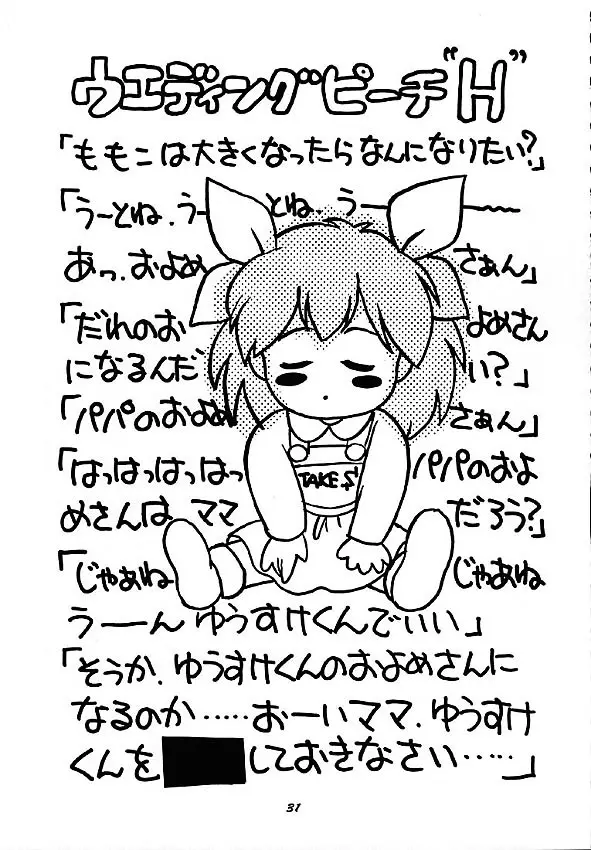 ウエディングピーチ"H"
「ももこは大きくなったらなんになりたい?」
「うーとね、うーとね、うー
あっ、およめさぁん」
「だれのおよめさん
になるんだい?」
「パパのおよめさぁん」
「はっはっはっはっパパのおよ
めさんは、ママだろう?」
「じゃあねじゃあね
うーんゆうすけくんでいい」
「そうか、ゆうすけくんのおよめさんに
なるのか……おーいママ、ゆうすけ
くんをしておきなさい……」
TAKE S
31